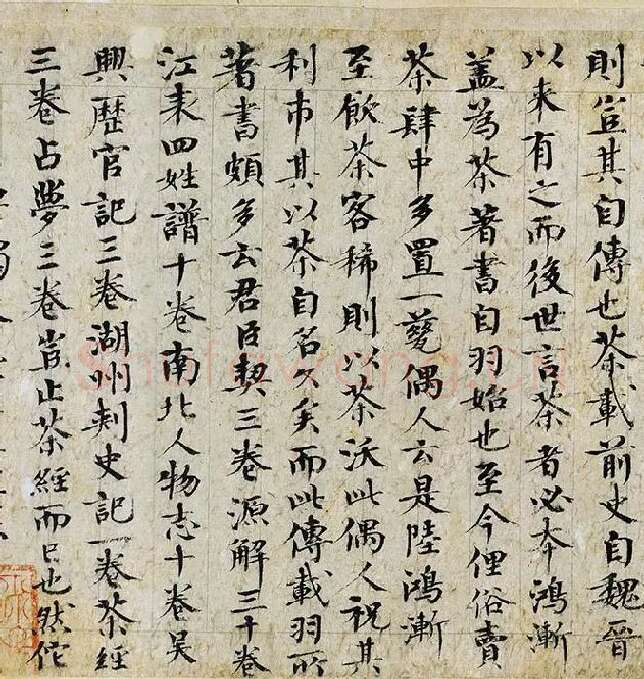 則豈其自傳也茶載前史自魏晉
以来有之而後世言茶者必本鴻漸
盖為茶著書自羽始也至今俚俗賣
茶肆中多置一甆偶人云是陸鴻漸
至飲茶客稀則以茶沃此偶人祝其
利市其以茶自名久矣而此傳載羽所
著書頗多云君臣契三卷源解三十卷
江表四姓譜十卷南北人物志十卷吴
興歷官記三卷湖州刺史記一卷茶經
三卷占夢三卷豈止茶經而已也然佗